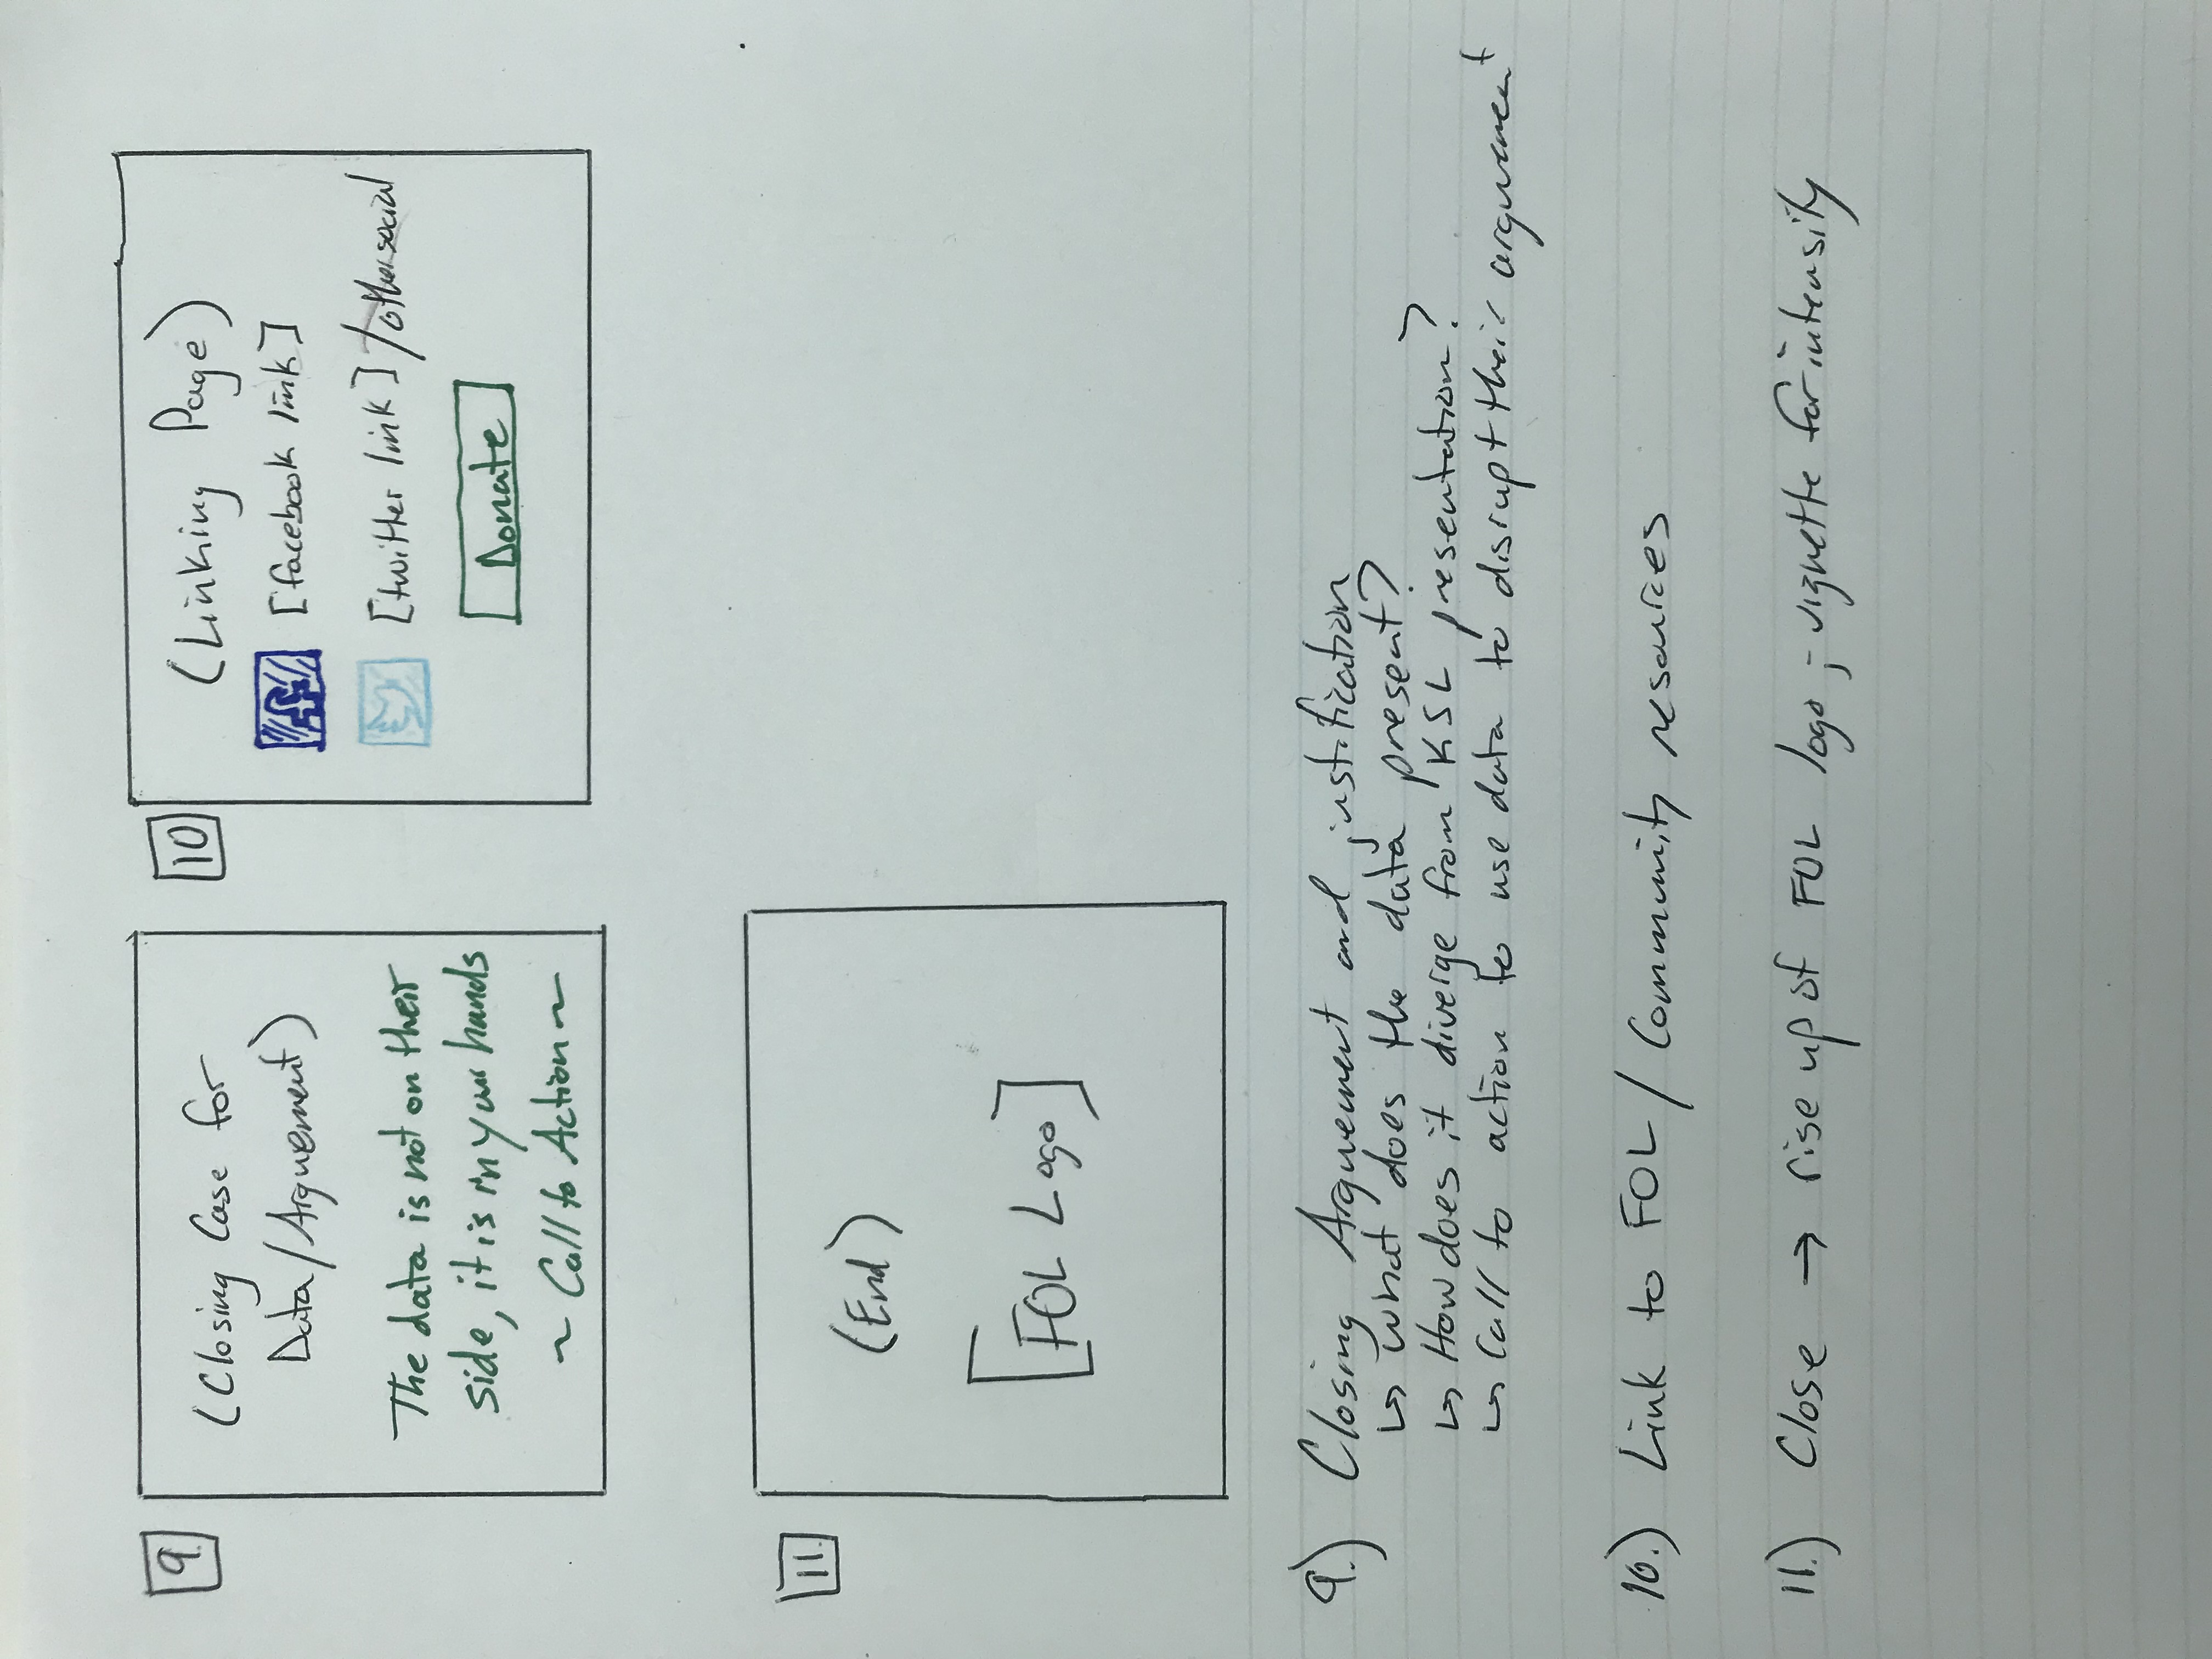 9.
(Closing Case for
Data/Arguement)
The data is not on their
side, it is in your hands
~ Call to Action ~
10
(Linking Page)
f [facebook link]
[twitter link] / other social
Donate
11.
(End)
[FOL Logo]
9.) Closing Arguement and justification
↳ what does the data present?
↳ How does it diverge from KSL presentation?
↳ Call to action to use data to disrupt their arguement
10.) Link to FOL / Community resources
11.) Close → rise up of FOL logo ; vignette for intensity